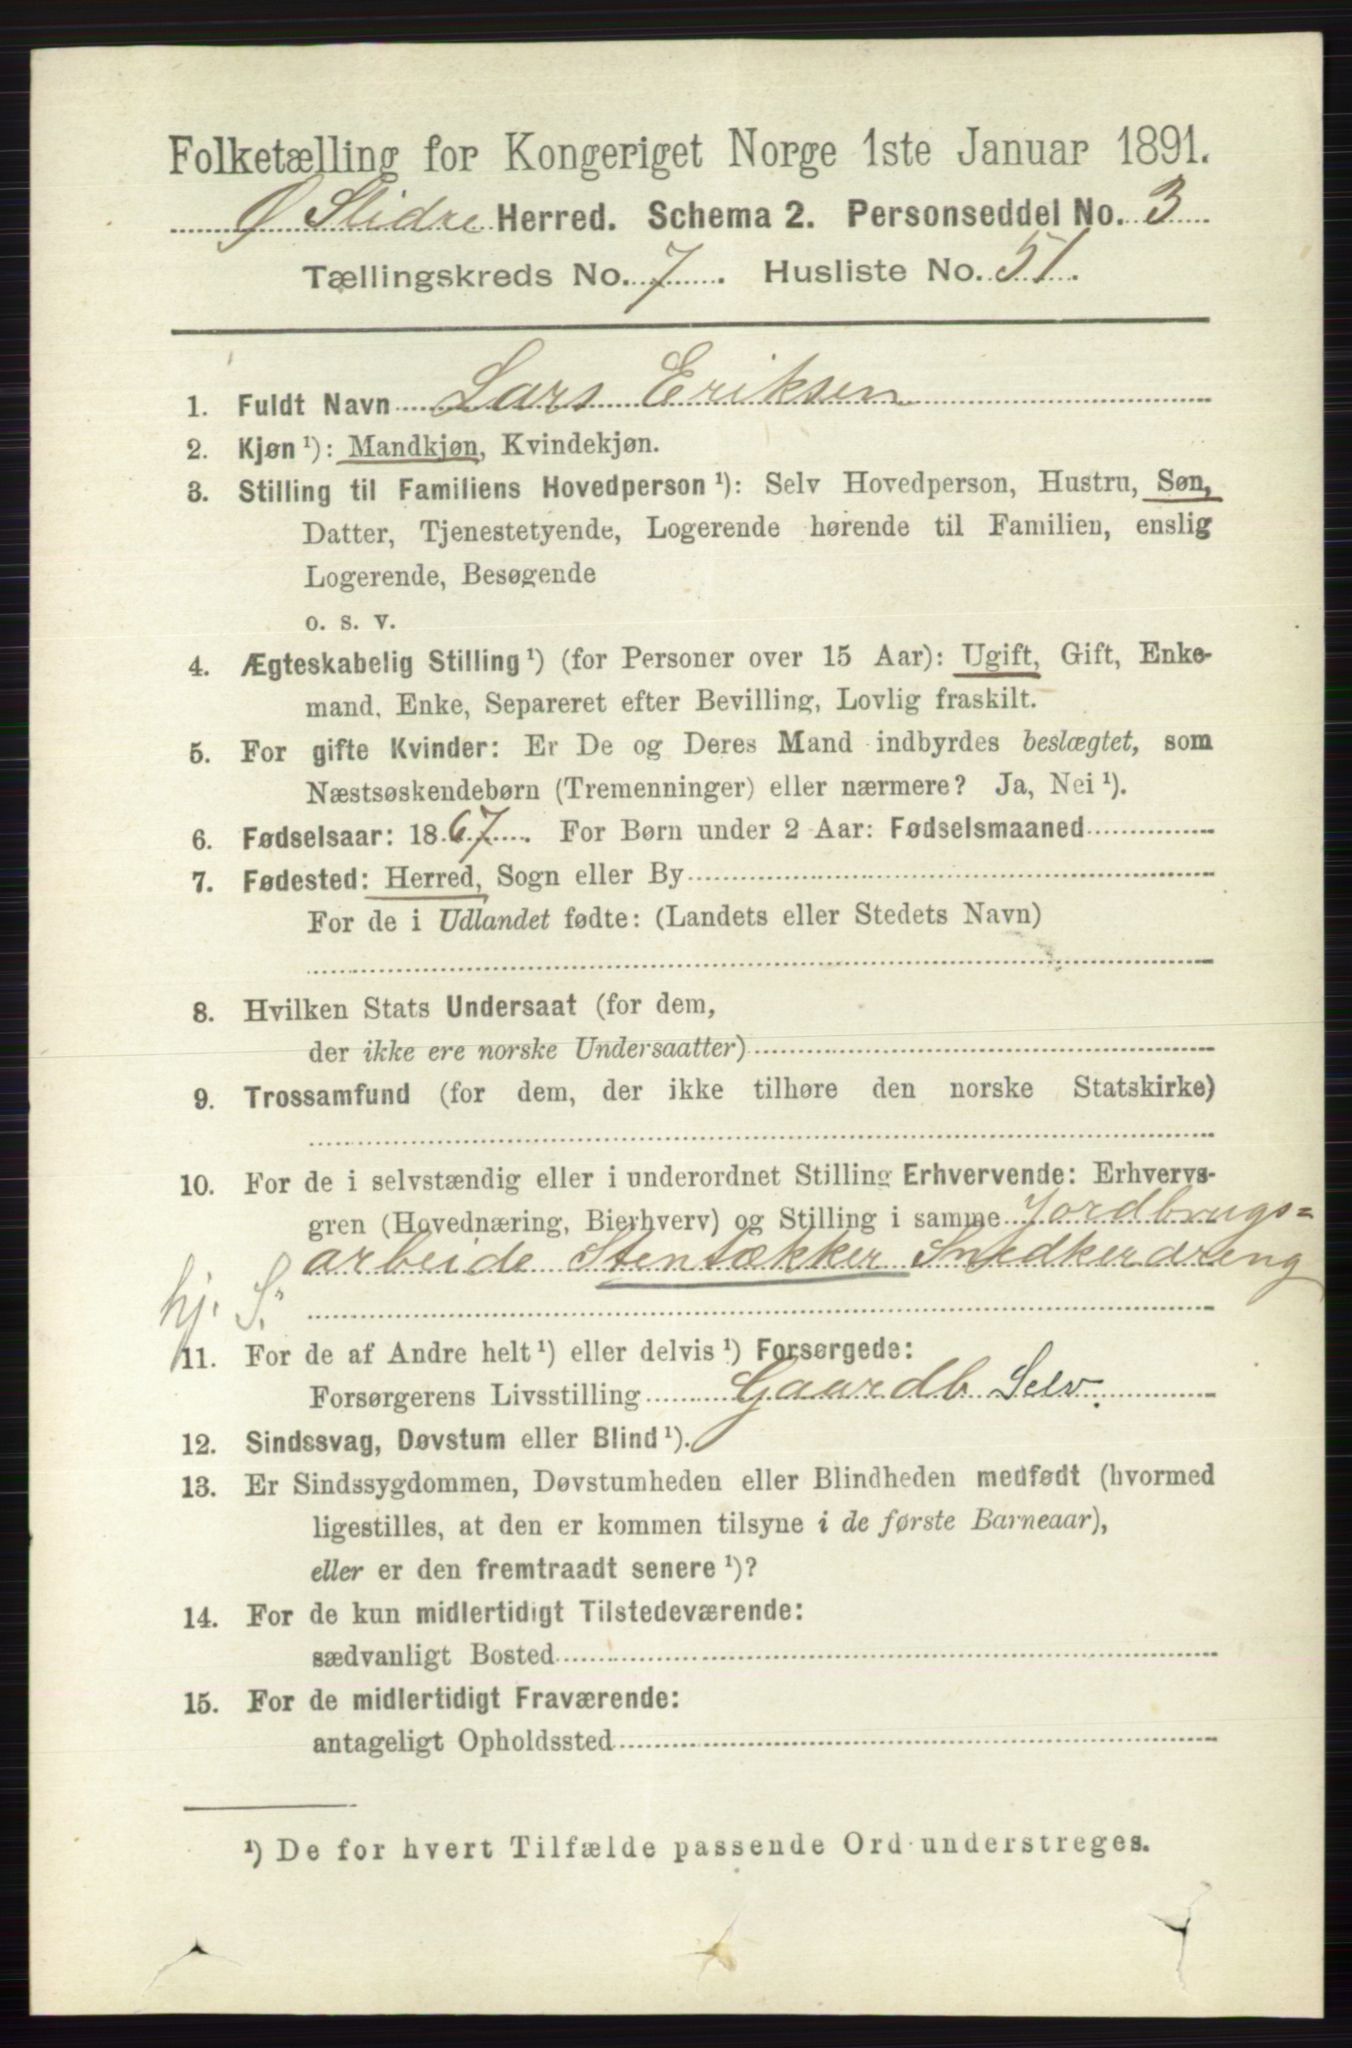 Folketælling for Kongeriget Norge 1ste Januar 1891.
Ø Slidre Herred. Schema 2. Personseddel No. 3
Tællingskreds No. 7. Husliste No. 51.
1. Fuldt Navn Lars Eriksen
2. Kjøn ¹): Mandkjøn, Kvindekjøn.
3. Stilling til Familiens Hovedperson ¹): Selv Hovedperson, Hustru, Søn,
Datter, Tjenestetyende, Logerende hørende til Familien, enslig
Logerende, Besøgende
o. s. v.
4. Ægteskabelig Stilling ¹) (for Personer over 15 Aar): Ugift, Gift, Enke-
mand, Enke, Separeret efter Bevilling, Lovlig fraskilt.
5. For gifte Kvinder: Er De og Deres Mand indbyrdes beslægtet, som
Næstsøskendebørn (Tremenninger) eller nærmere? Ja, Nei ¹).
6. Fødselsaar: 1867. For Børn under 2 Aar: Fødselsmaaned
7. Fødested: Herred, Sogn eller By
For de i Udlandet fødte: (Landets eller Stedets Navn)
8. Hvilken Stats Undersaat (for dem,
der ikke ere norske Undersaatter)
9. Trossamfund (for dem, der ikke tilhøre den norske Statskirke)
10. For de i selvstændig eller i underordnet Stilling Erhvervende: Erhvervs-
gren (Hovednæring, Bierhverv) og Stilling i samme Jordbrugs=
arbeide Stentækker Snedkerdreng
hj. S.
11. For de af Andre helt ¹) eller delvis ¹) Forsørgede:
Forsørgerens Livsstilling Gaardb Selv.
12. Sindssvag, Døvstum eller Blind ¹).
13. Er Sindssygdommen, Døvstumheden eller Blindheden medfødt (hvormed
ligestilles, at den er kommen tilsyne i de første Barneaar),
eller er den fremtraadt senere ¹)?
14. For de kun midlertidigt Tilstedeværende:
sædvanligt Bosted
15. For de midlertidigt Fraværende:
antageligt Opholdssted
¹) De for hvert Tilfælde passende Ord understreges.